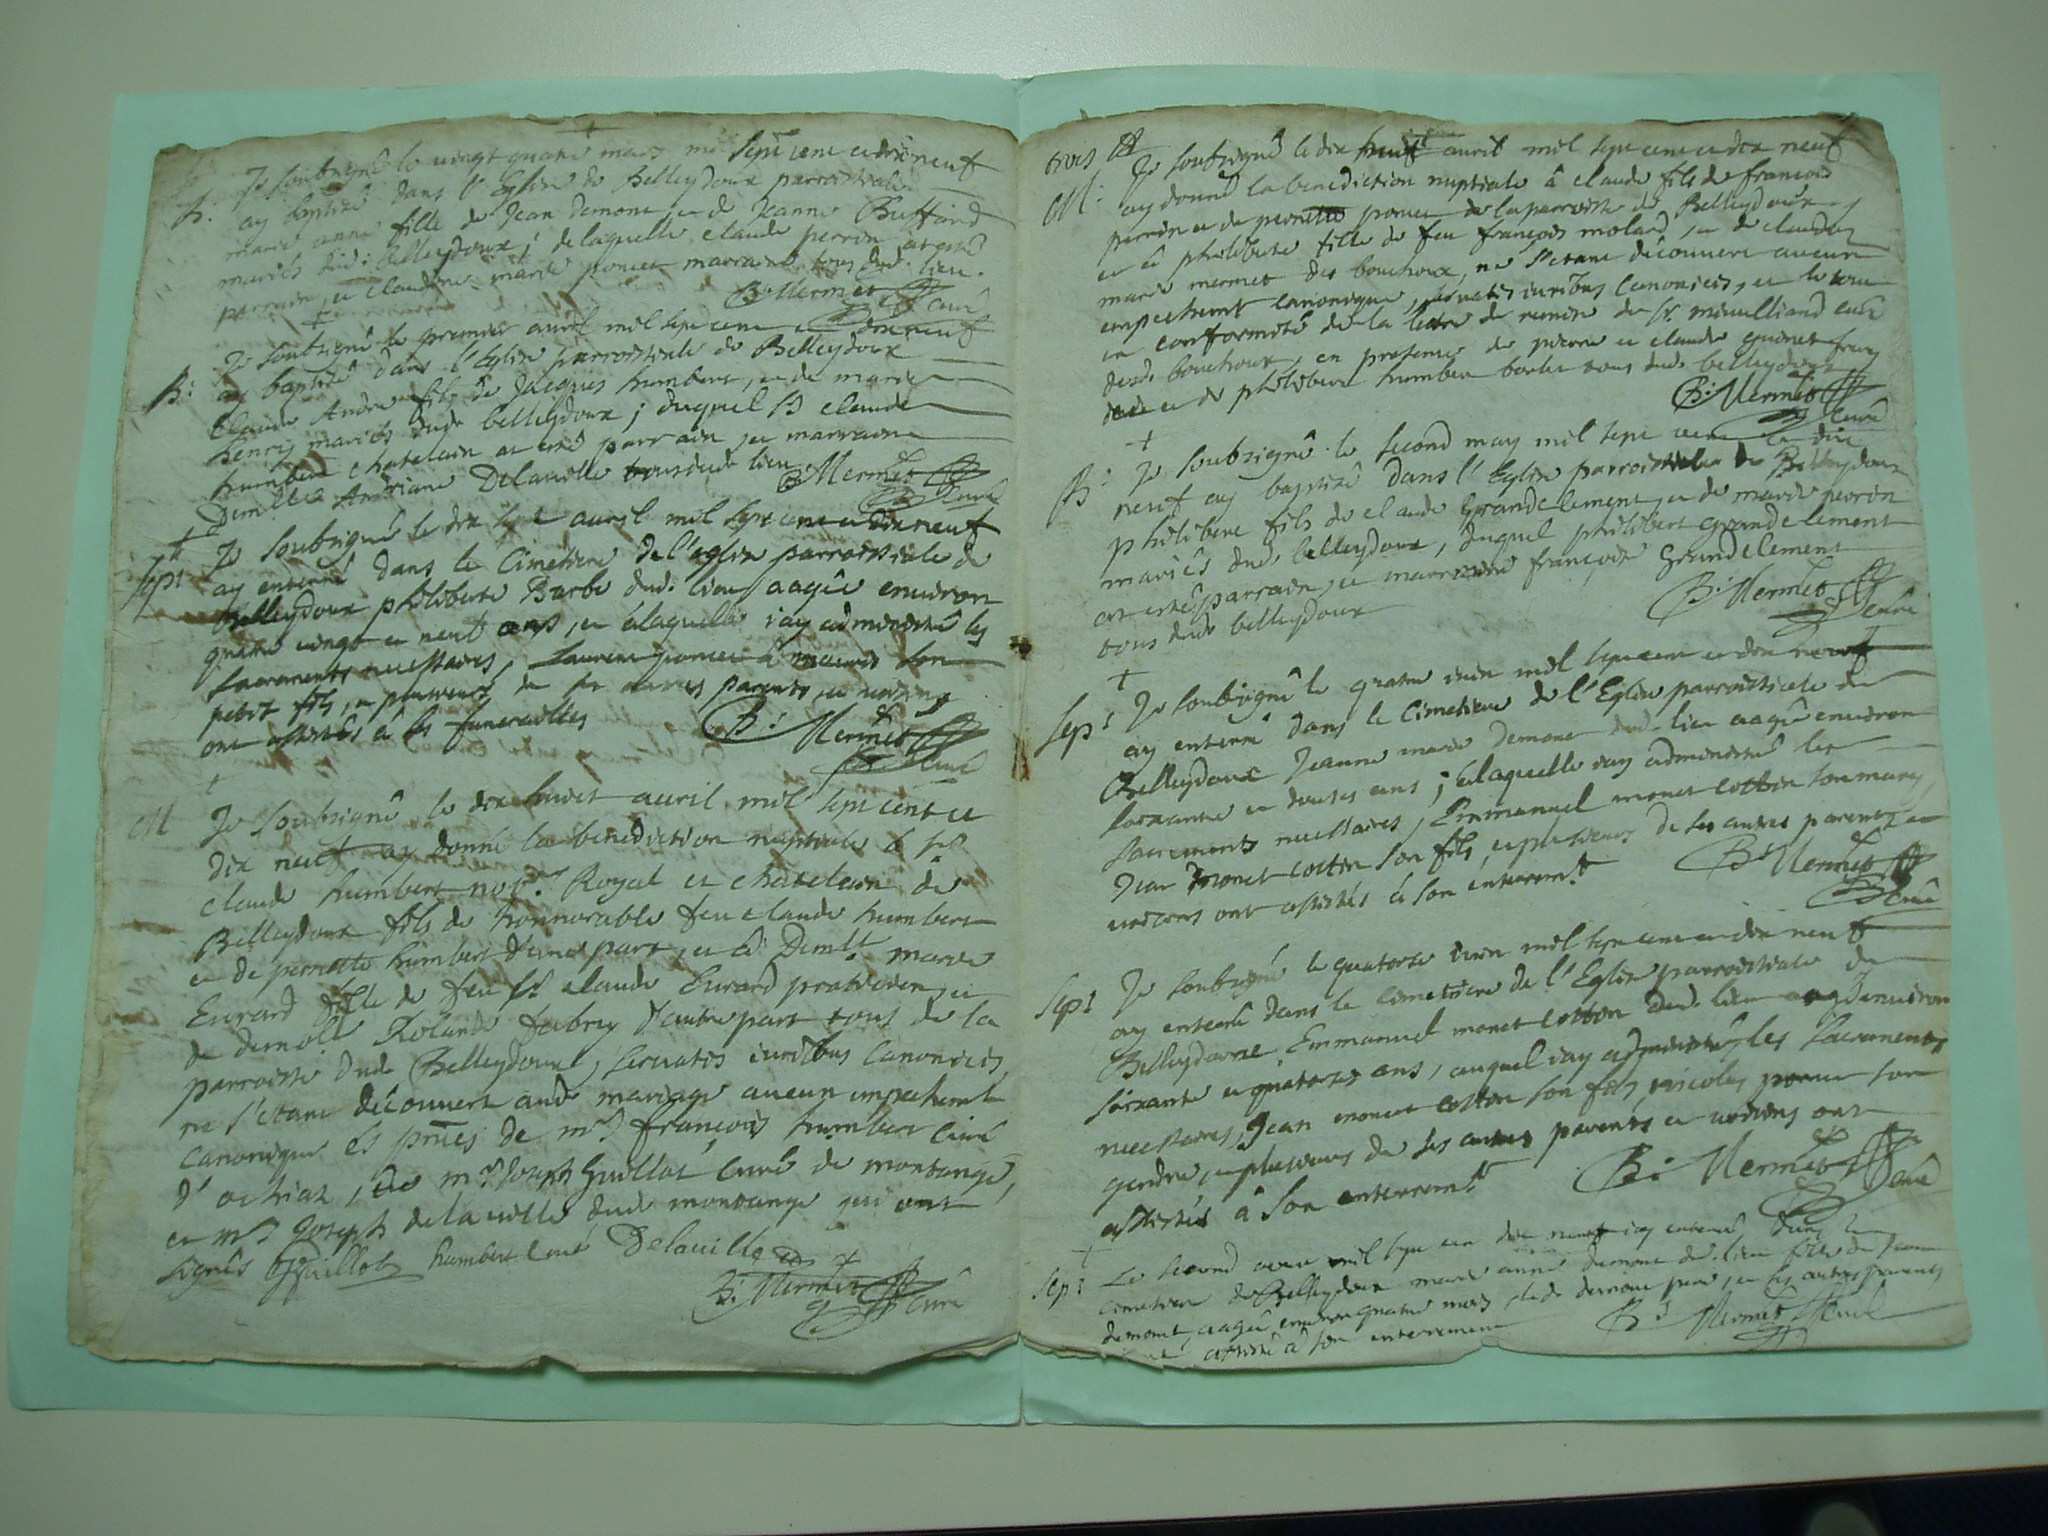 B. Je soubsigné le vingt quatre mars mil sept cent et dix neuf
ay baptisé dans l'Eglise de Belleydoux parroissiale
marie anne fille de Jean Demont et de Jeanne Buffard
mariés dud. Belleydoux; de laquelle claude perrin at esté
parrain, et claudine marie poncet marraine tous dud. lieu.
B. Mermet curé
Je soubsigné le premier auril mil sept cent et dix neuf
B: ay baptisé dans l'Eglise parroissiale de Belleydoux
Claude Andre fils de Jacques humbert, et de marie
henry mariés dud. belleydoux; duquel Sr claude
humbert chatelain at esté parrain, et marraine
Demlle Andriane Delaville tous dud. lieu B. Mermet
curé
Je soubsigné le dix sept auril mil sept cent et dix neuf
sep: ay enterré dans le Cimetiere de l'eglise parroissiale de
Belleydoux philiberte Barbe dud. lieu, aagée enuiron
quatre vingt et neuf ans, et a laquelle i'ay administré les
sacrements necessaires, Laurent poncet à mauris son
petit fils, et plusieurs de ses autres parents, et voisins
ont assistés à ses funerailles B: Mermet
curé
M Je soubsigné le dix huict auril mil sept cent et
dix neuf ay donné la benediction nuptiale à sr
claude humbert not.re Royal et chatelain de
Belleydoux fils de honnorable feu claude humbert
et de pernette humbert d'une part, et à Demlle marie
Eurard fille de feu sr claude Eurard praticien, et
de demolle Rolande fabry d'autre part tous de la
parroisse dud. Belleydoux, seruatis iuribus canonicis,
ne s'etant découuert aud. mariage aucun empechemt
canonique és pntes de mre françois humbert curé
d'ochiaz, de mre Joseph Guillot curé de montange,
et mre Joseph delauille dud. montange qui ont
signés JGuillot humbert curé Delauille
B: Mermet curé
trois
Je soubsigné le dix huit auril mil sept cent et dix neuf
M: ay donné la benediction nuptiale à claude fils de françois
perrin et de pernette poncet de la parroisse de Belleydoux,
et à philiberte fille de feu françois molard, et de claudaz
marie mermet des bouchoux, ne s'etant découuert aucun
empechemt canonique, seruatis iuribus canonicis, et le tout
en conformité de la lettre de remise du sr. curé
desd. bouchoux, en presence de pierre et claude
et de philibert humbert tous dud. belleydoux
B: Mermet
curé
B: Je soubsigné le second may mil sept cent et dix
neuf ay baptisé dans l'Eglise parroissiale de Belleydoux
philibert fils de claude Grandclement, et de marie perrin
mariés dud. belleydoux, duquel philibert grandclement
at esté parrain, et marraine françoise Grandclement
tous dud. belleydoux B: Mermet
curé
sep: Je soubsigné le quatre iuin mil sept cent et dix neuf
ay enterré dans le Cimetiere de l'Eglise parroissiale de
Belleydoux Jeanne marie demont dud. lieu aagée enuiron
soixante et douze ans; à laquelle i'ay administré les
sacrements necessaires, Emmanuel monet cottin son mary,
Jean monet cottin son fils, et plusieurs de ses autres parents, et
voisins ont assistés à son enterremt B: Mermet
curé
sep: Je soubsigné le quatorze iuin mil sept cent et dix neuf
ay enterré dans le cimetiere de l'Eglise parroissiale de
Belleydoux Emmanuel monet cotton dud. lieu aagé enuiron
soixante et quatorze ans, auquel i'ay administré les sacrements
necessaires, Jean monet cotton son fils, nicolas poncet son
gendre, et plusieurs de ses autres parents et voisins ont
assistés à son enterremt B: Mermet
curé
sep: Le second mil sept cent dix neuf i'ay enterré dans le
cimetiere de Belleydoux marie anne demont dud. lieu fille de Jean
demont aagée enuiron quatre mois, led. demont pere, et ses autres parents
assisté à son enterrement B: Mermet curé